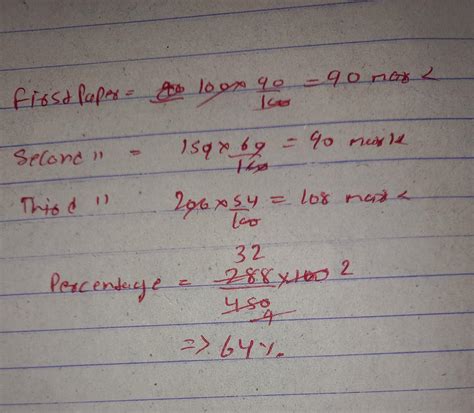 First Paper = 100 × 90/100 = 90 mark
Second " = 150 × 60/100 = 90 mark
Third " 200 × 54/100 = 108 mark
32
Percentage = 288 × 100 2
450
=> 64%